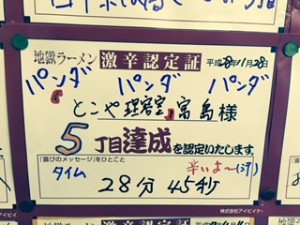 地獄ラーメン 激辛認定証 平成28年11月28日
パンダ パンダ パンダ
とこや 理容室 宮島様
5丁目達成を認定いたします
「喜びのメッセージ」をひとこと 辛いよ〜(汗)
タイム
28分45秒
株式会社アイビイケー